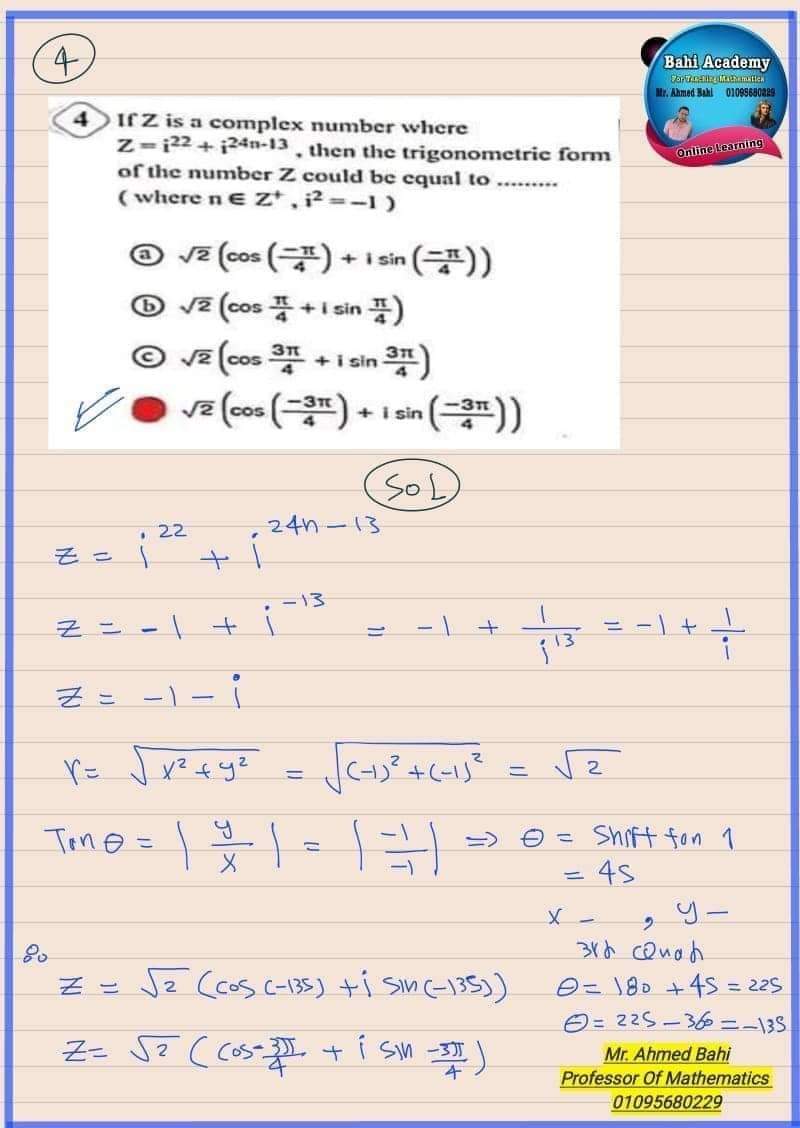 4
Bahi Academy
For Teaching Mathematics
Mr. Ahmed Bahi 01095680229
Online Learning
4 If Z is a complex number where
Z = i²² + i²⁴ⁿ⁻¹³ , then the trigonometric form
of the number Z could be equal to .........
( where n ∈ Z⁺ , i² = –1 )
ⓐ √2 (cos (–π/4) + i sin (–π/4))
ⓑ √2 (cos π/4 + i sin π/4)
ⓒ √2 (cos 3π/4 + i sin 3π/4)
√2 (cos (–3π/4) + i sin (–3π/4))
SOL
z = i²² + i²⁴ⁿ⁻¹³
z = -1 + i⁻¹³ = -1 + 1/i¹³ = -1 + 1/i
z = -1 - i
r = √(x² + y²) = √((-1)² + (-1)²) = √2
Tan θ = | y/x | = | -1/-1 | => θ = Shift tan 1
= 45
x - , y -
3rd Quad
θ = 180 + 45 = 225
θ = 225 - 360 = -135
z = √2 (cos (-135) + i sin (-135))
z = √2 ( cos -3π/4 + i sin -3π/4 )
Mr. Ahmed Bahi
Professor Of Mathematics
01095680229